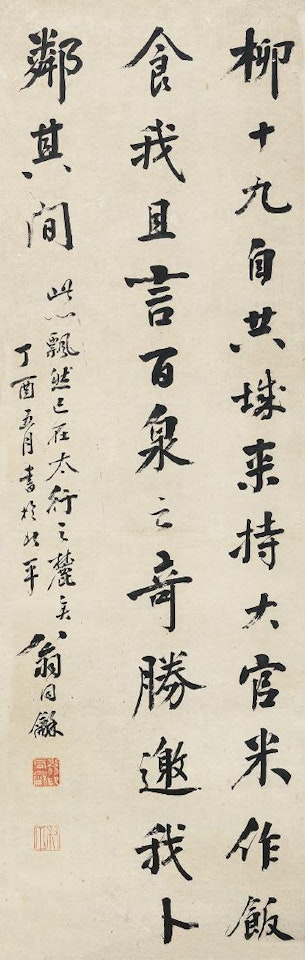 柳十九自共城来持大官米作飯
食我且言百泉之奇勝邀我卜
鄰其間
此心飄然已在太行之麓矣
丁酉五月書於北平
翁同龢